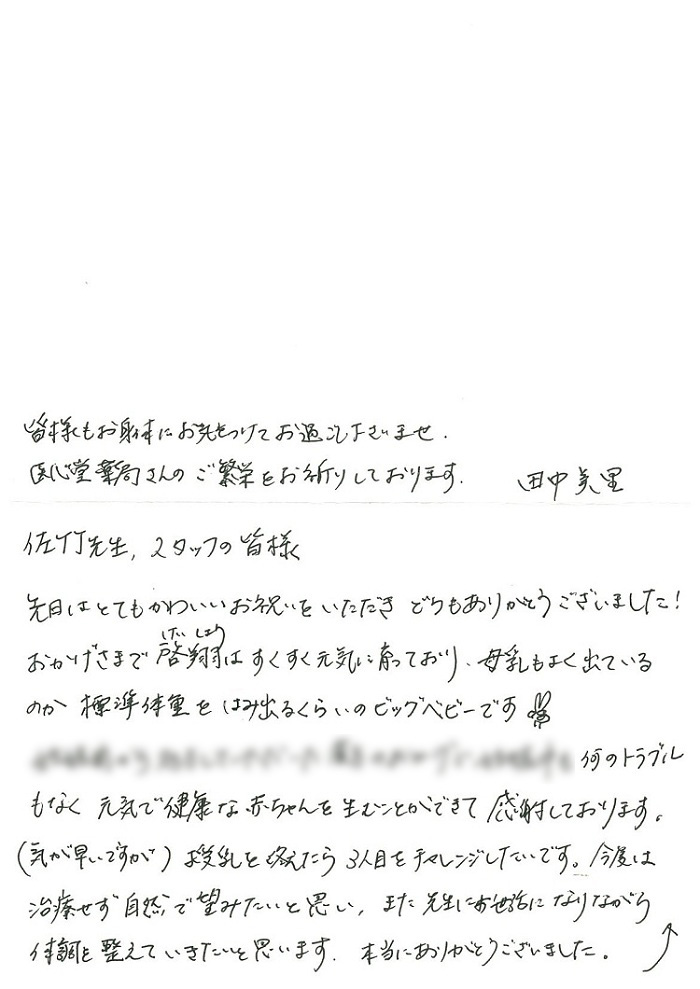 皆様もお身体にお気をつけてお過ごし下さいませ.
医心堂薬局さんのご繁栄をお祈りしております. 田中美里
佐竹先生, スタッフの皆様
先日はとてもかわいいお祝いをいただき どうもありがとうございました!
けいしょう
おかげさまで啓翔はすくすく元気に育っており、母乳もよく出ている
のか 標準体重をはみ出るくらいのビッグベビーです
何のトラブル
もなく 元気で健康な赤ちゃんを生むことができて 感謝しております。
(気が早いですが) 授乳を終えたら 3人目をチャレンジしたいです。今度は
治療せず 自然で望みたいと思い, また先生にお世話になりながら
体調を整えていきたいと思います. 本当にありがとうございました。